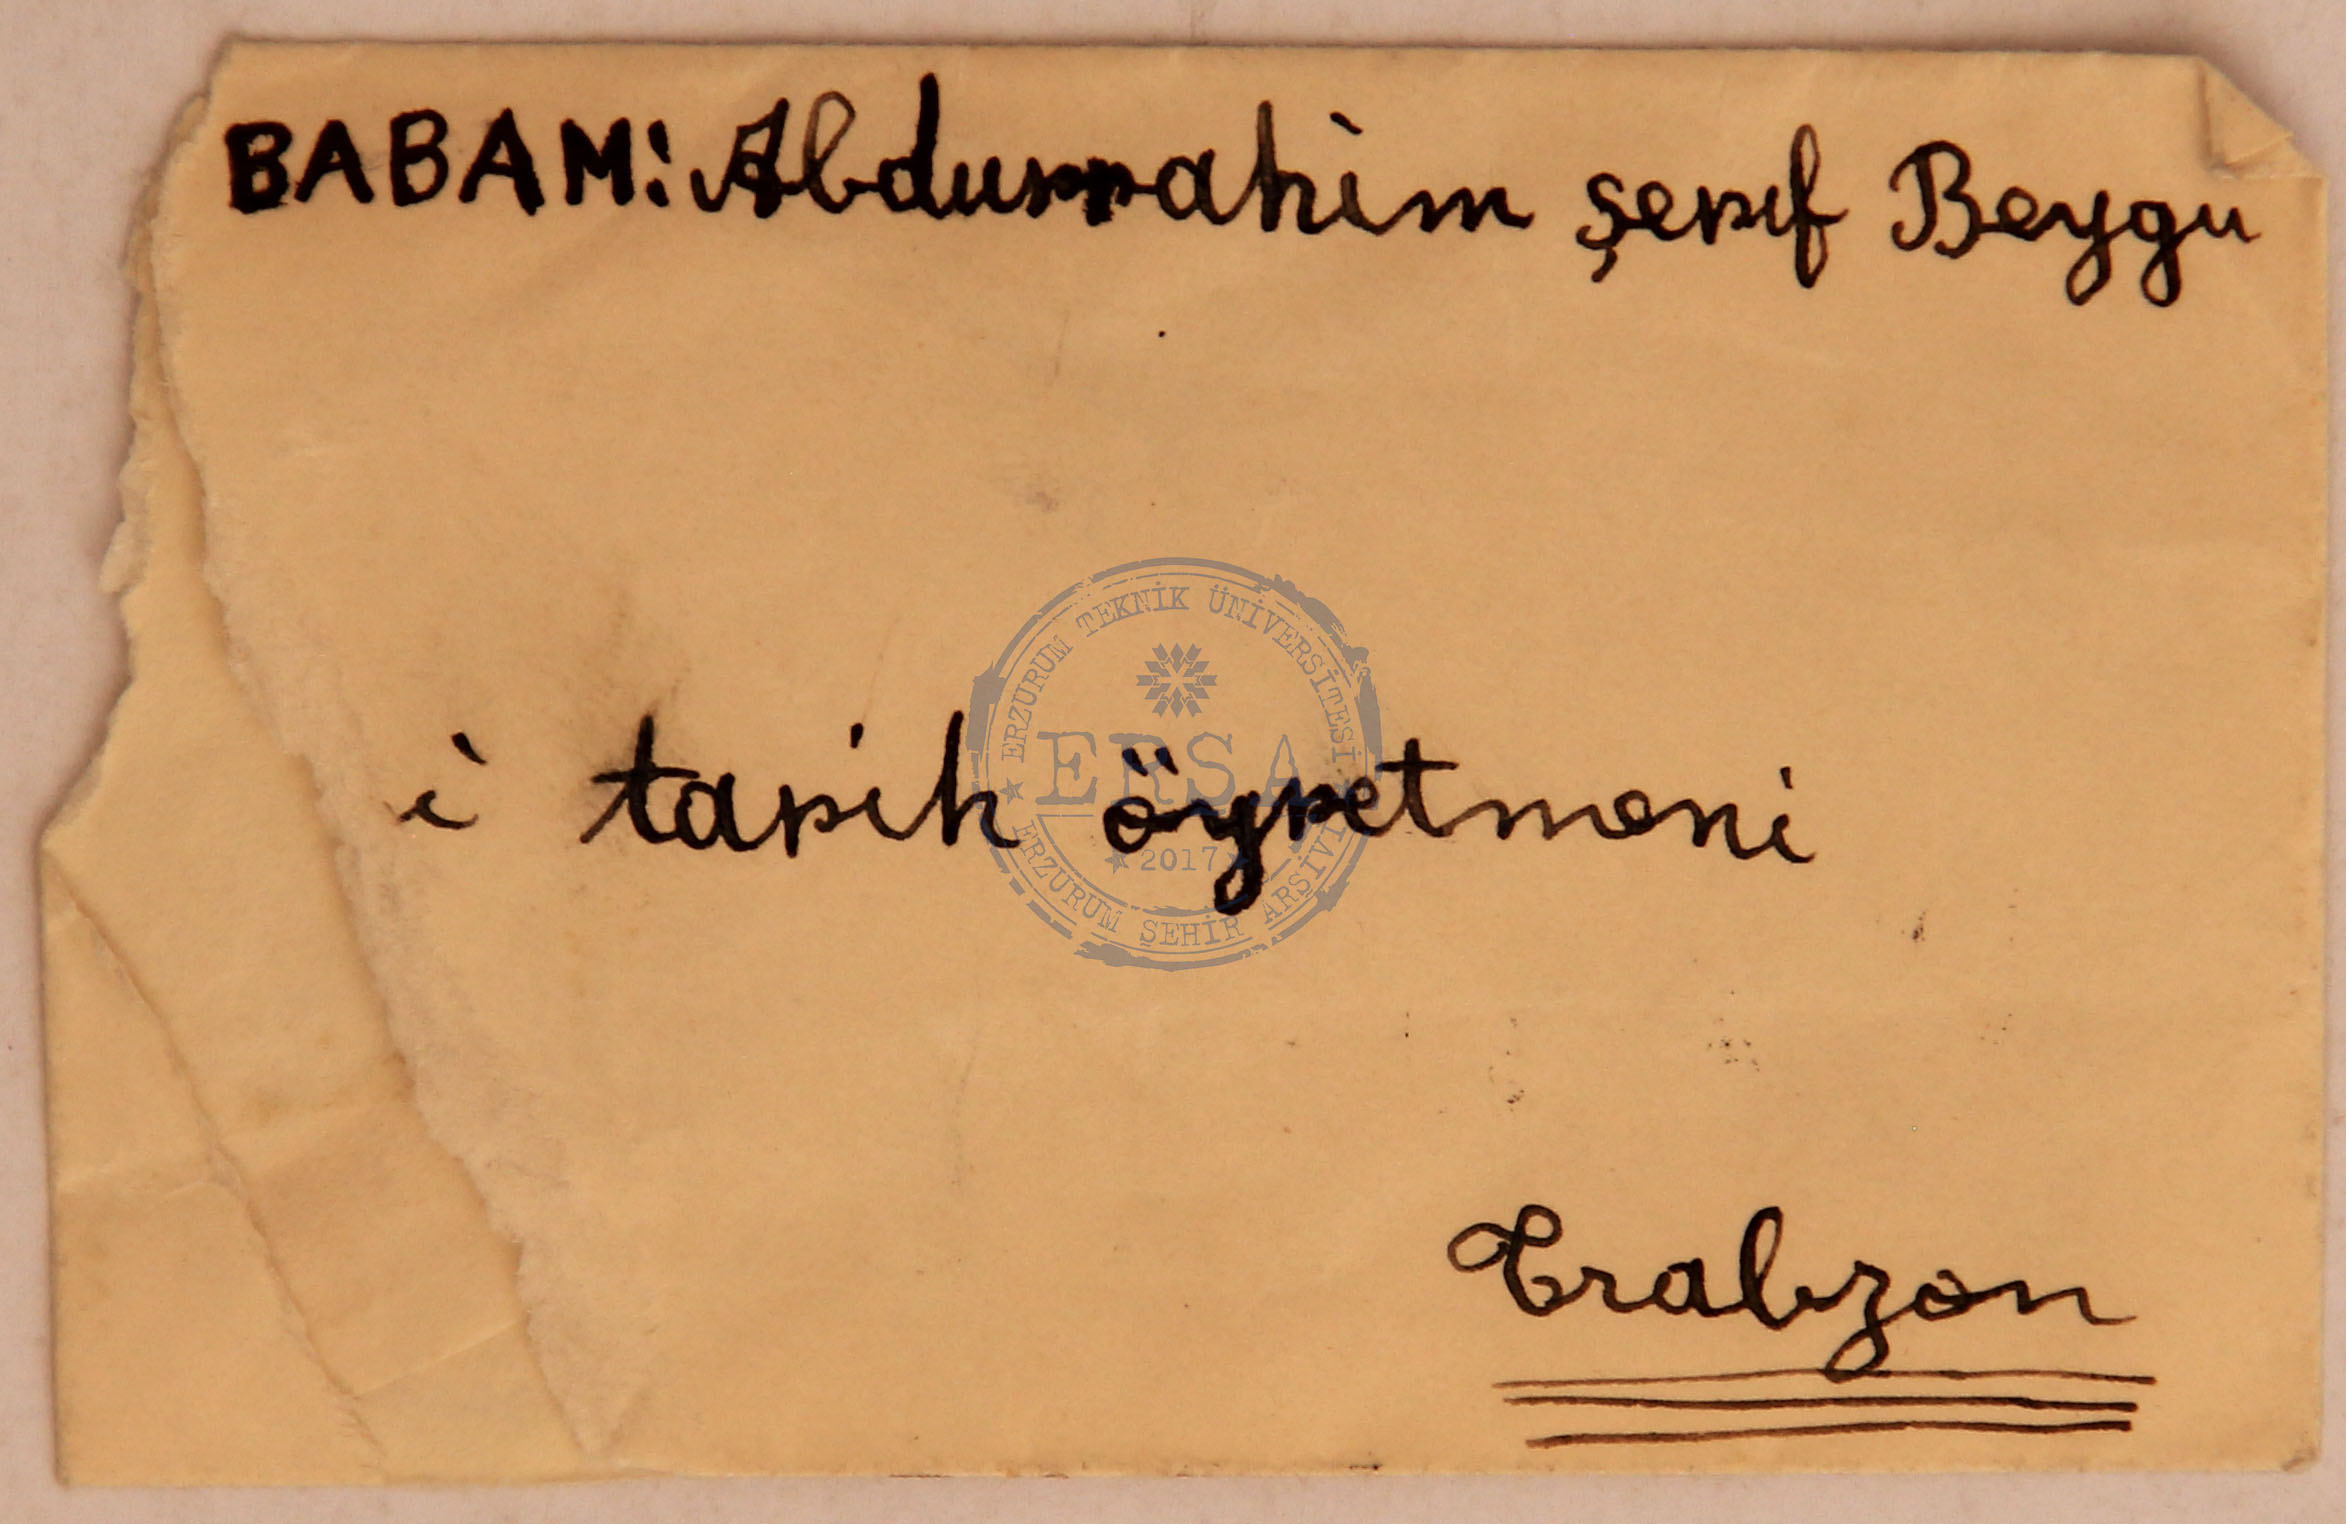 BABAM: Abdurrahim Şerif Beygu
i tarih öğretmeni
Trabzon
ERZURUM TEKNİK ÜNİVERSİTESİ
ERSA
2017
ERZURUM ŞEHİR ARŞİVİ